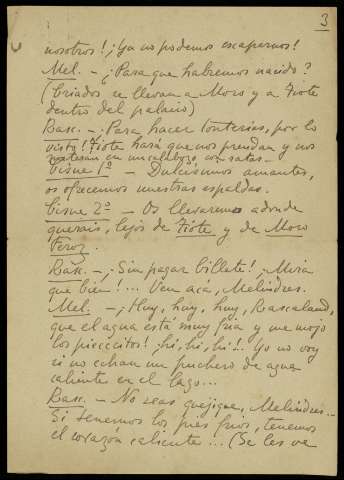 3
nosotros! ¡Ya no podemos escaparnos!
Mel. - ¿Para que habremos nacido?
(Criados se llevan a Moro y a Fiote
dentro del palacio)
Rasc. - ¡Para hacer tonterias, por lo
visto! Fiote hará que nos prendan y nos
metan en un calabozo, con ratas.
Cisne 1º - Dulcísimos amantes,
os ofrecemos nuestras espaldas.
Cisne 2º - Os llevaremos adonde
querais, lejos de Fiote y de Moro
Feroz.
Rasc. - ¡Sin pagar billete! ¡Mira
que bien!... Ven acá, Melindres.
Mel. - ¡Huy, huy, huy, Rascaland,
que el agua está muy fria y me mojo
los piececitos! ¡hi, hi, hi!.. Yo no voy
si no echan un puchero de agua
caliente en el lago...
Rasc. - No seas quejigue, Melindres...
Si tenemos los pies frios, tenemos
el corazón caliente... (Se les ve